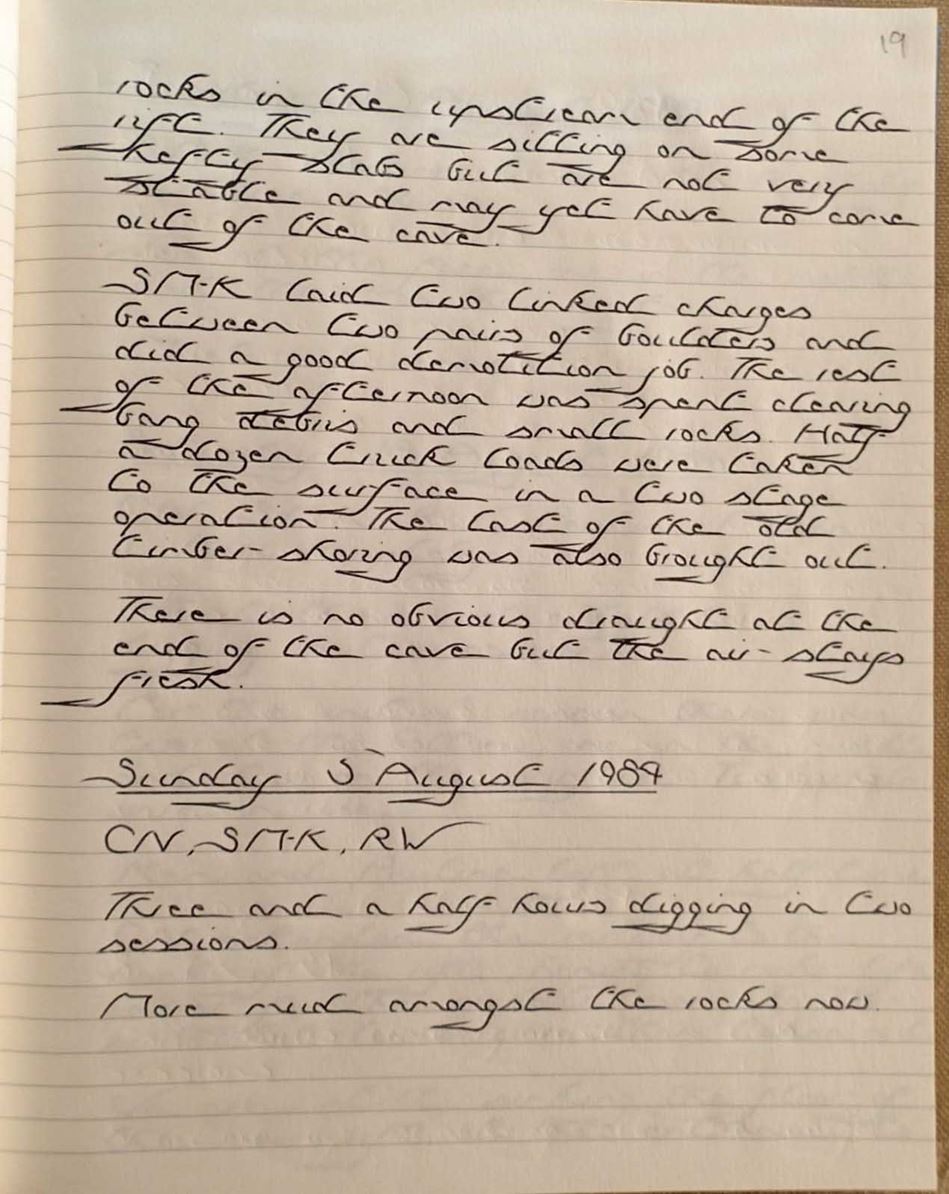 19
rocks in the upstream end of the
rift. They are sitting on some
hefty slabs but are not very
stable and may yet have to come
out of the cave.
SM-K laid two linked charges
between two pairs of boulders and
did a good demolition job. The rest
of the afternoon was spent clearing
bang debris and small rocks. Half
a dozen truck loads were taken
to the surface in a two stage
operation. The last of the old
timber shoring was also brought out.
There is no obvious draught at the
end of the cave but the air stays
fresh.
Sunday 5 August 1984
CN, SM-K, RW
Three and a half hours digging in two
sessions.
More mud amongst the rocks now.